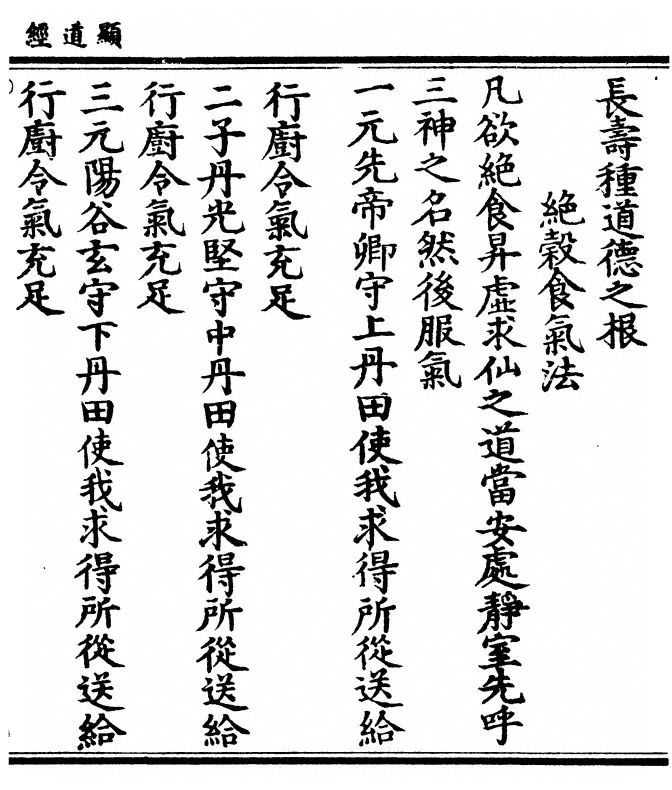 顯道經
長壽種道德之根
絶穀食氣法
凡欲絶食昇虛求仙之道當安處靜室先呼
三神之名然後服氣
一元先帝卿守上丹田使我求得所從送給
行廚令氣充足
二子丹光堅守中丹田使我求得所從送給
行廚令氣充足
三元陽谷玄守下丹田使我求得所從送給
行廚令氣充足